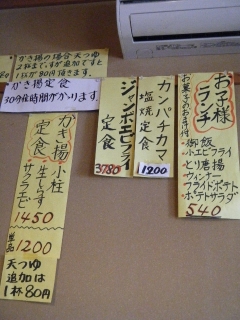 かき揚の場合天つゆ
2杯まいが追加ですと
1杯が80円頂きます。
かき揚定食
30分位時間がかかります。
かき揚定食
小柱
生しらす
サクラエビ
1450
単品
1200
天つゆ
追加は
1杯80円
ジャンボエビフライ
定食
3780
カンパチカマ
塩焼定食
1200
お子様
ランチ
お菓子のおまけ付
・御飯
・小エビフライ
・とり唐揚
・ウィンナー
・フライドポテト
・ポテトサラダ
540